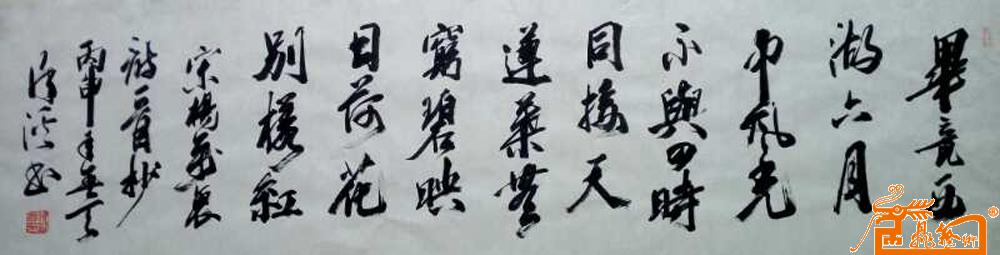 畢竟西
湖六月
中風光
不與四時
同接天
蓮葉無
窮碧映
日荷花
別樣紅
宋楊萬里
詩一首抄
丙申年
書